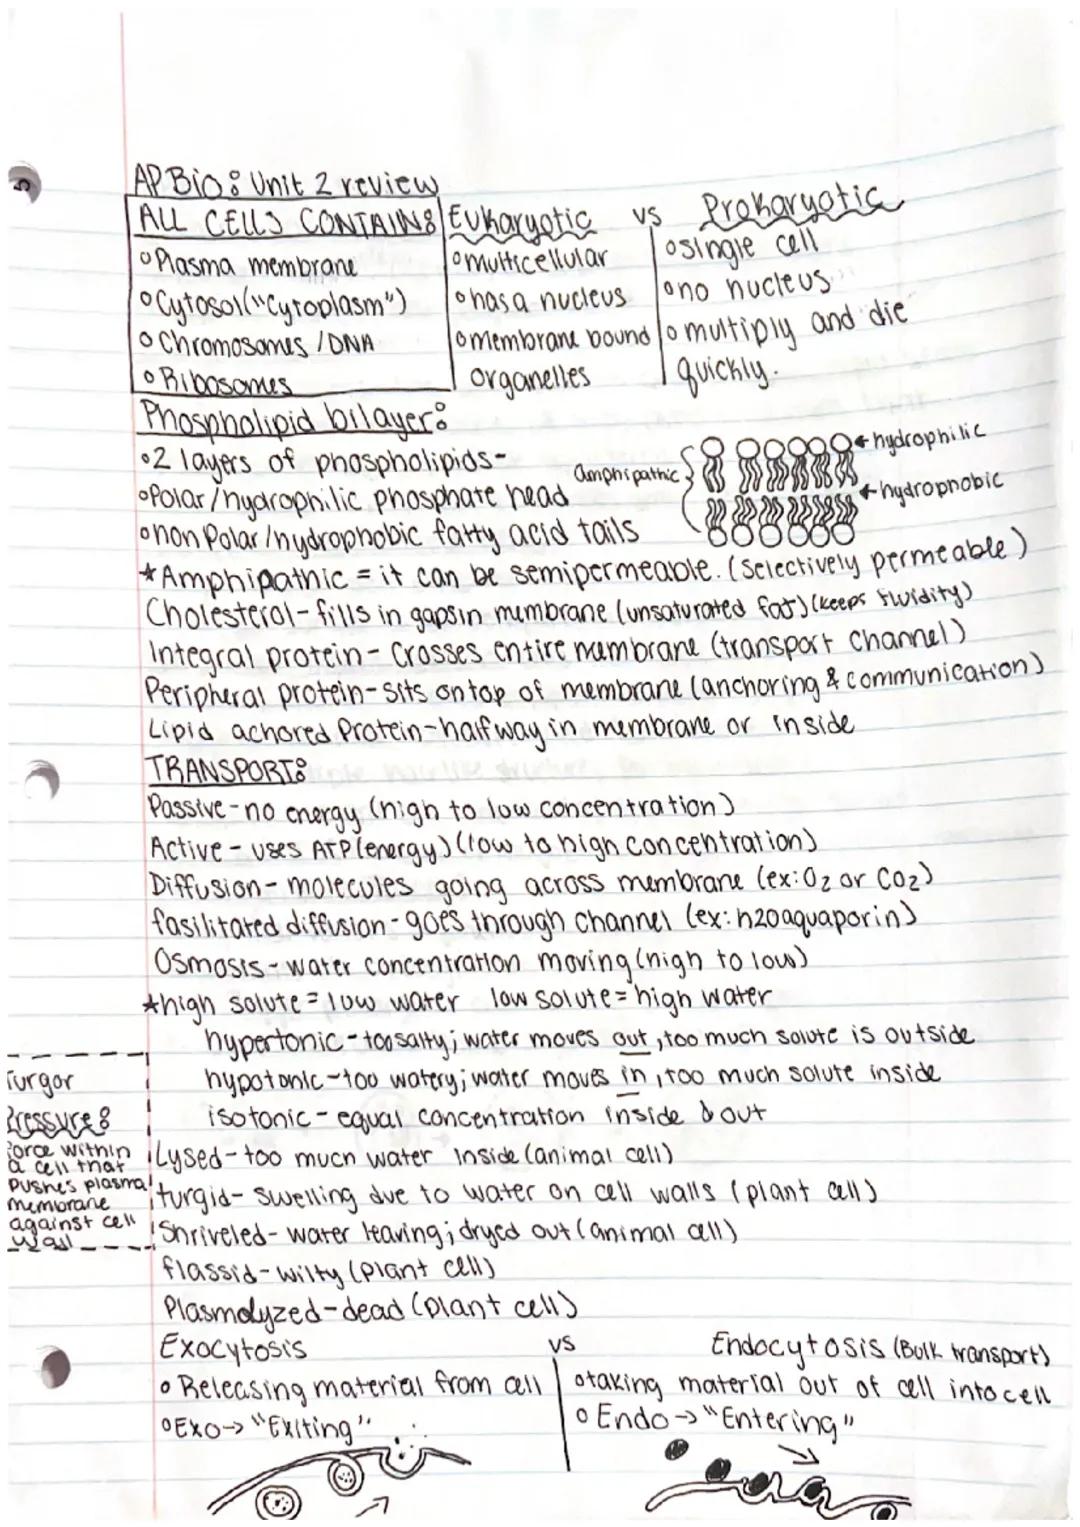 AP Bio: Unit 2 review
ALL CELLS CONTAIN:
o Plasma membrane
o Cytosol ("Cytoplasm")
o Chromosomes / DNA
o Ribosomes
Eukaryotic vs Prokaryotic
o multicellular
o has a nucleus
o membrane bound
organelles
o single cell
o no nucleus
o multiply and die
quickly.
Phospholipid bilayer:
o 2 layers of phospholipids-
o Polar/hydrophilic phosphate head
o non Polar/hydrophobic fatty acid tails
amphipathic
hydrophilic
hydrophobic
*Amphipathic = it can be semipermeable. (selectively permeable)
Cholesterol - fills in gaps in membrane (unsaturated fat) (keeps fluidity)
Integral protein - Crosses entire membrane (transport channel)
Peripheral protein - sits on top of membrane (anchoring & communication)
Lipid achored Protein - halfway in membrane or inside
TRANSPORT:
Passive - no energy (high to low concentration)
Active - uses ATP (energy) (low to high concentration)
Diffusion - molecules going across membrane (ex: O2 or CO2)
fasilitated diffusion - goes through channel (ex: h20 aquaporin)
Osmosis - water concentration moving (high to low)
*high solute = low water low solute = high water
hypertonic - too salty; water moves out, too much solute is outside
hypotonic - too watery; water moves in, too much solute inside
isotonic - equal concentration inside & out
Turgor
Pressure:
Force within
a cell that
pushes plasma
membrane
against cell
wall
Lysed - too much water inside (animal cell)
turgid - swelling due to water on cell walls (plant cell)
Shriveled - water leaving; dryed out (animal cell)
flassid - wilty (plant cell)
Plasmolyzed - dead (plant cell)
Exocytosis vs Endocytosis (Bulk transport)
o Releasing material from cell
o Exo → "Exiting"
o taking material out of cell into cell
o Endo → "Entering"